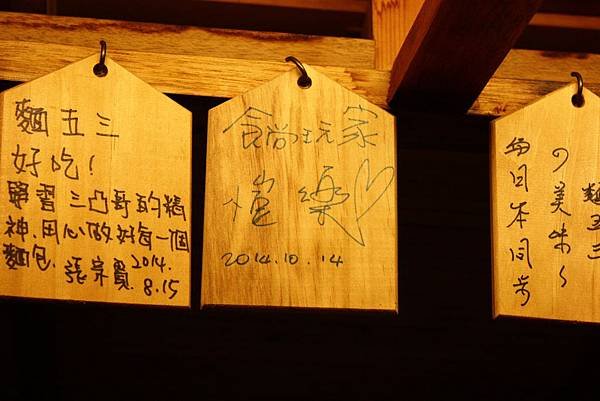 麵五三
好吃!
學習三凸哥的精
神.用心做好每一個
麵包. 張宗贒 2014.
8.15
食尚玩家
愷樂
2014.10.14
麵五三
の美味~
與日本同步